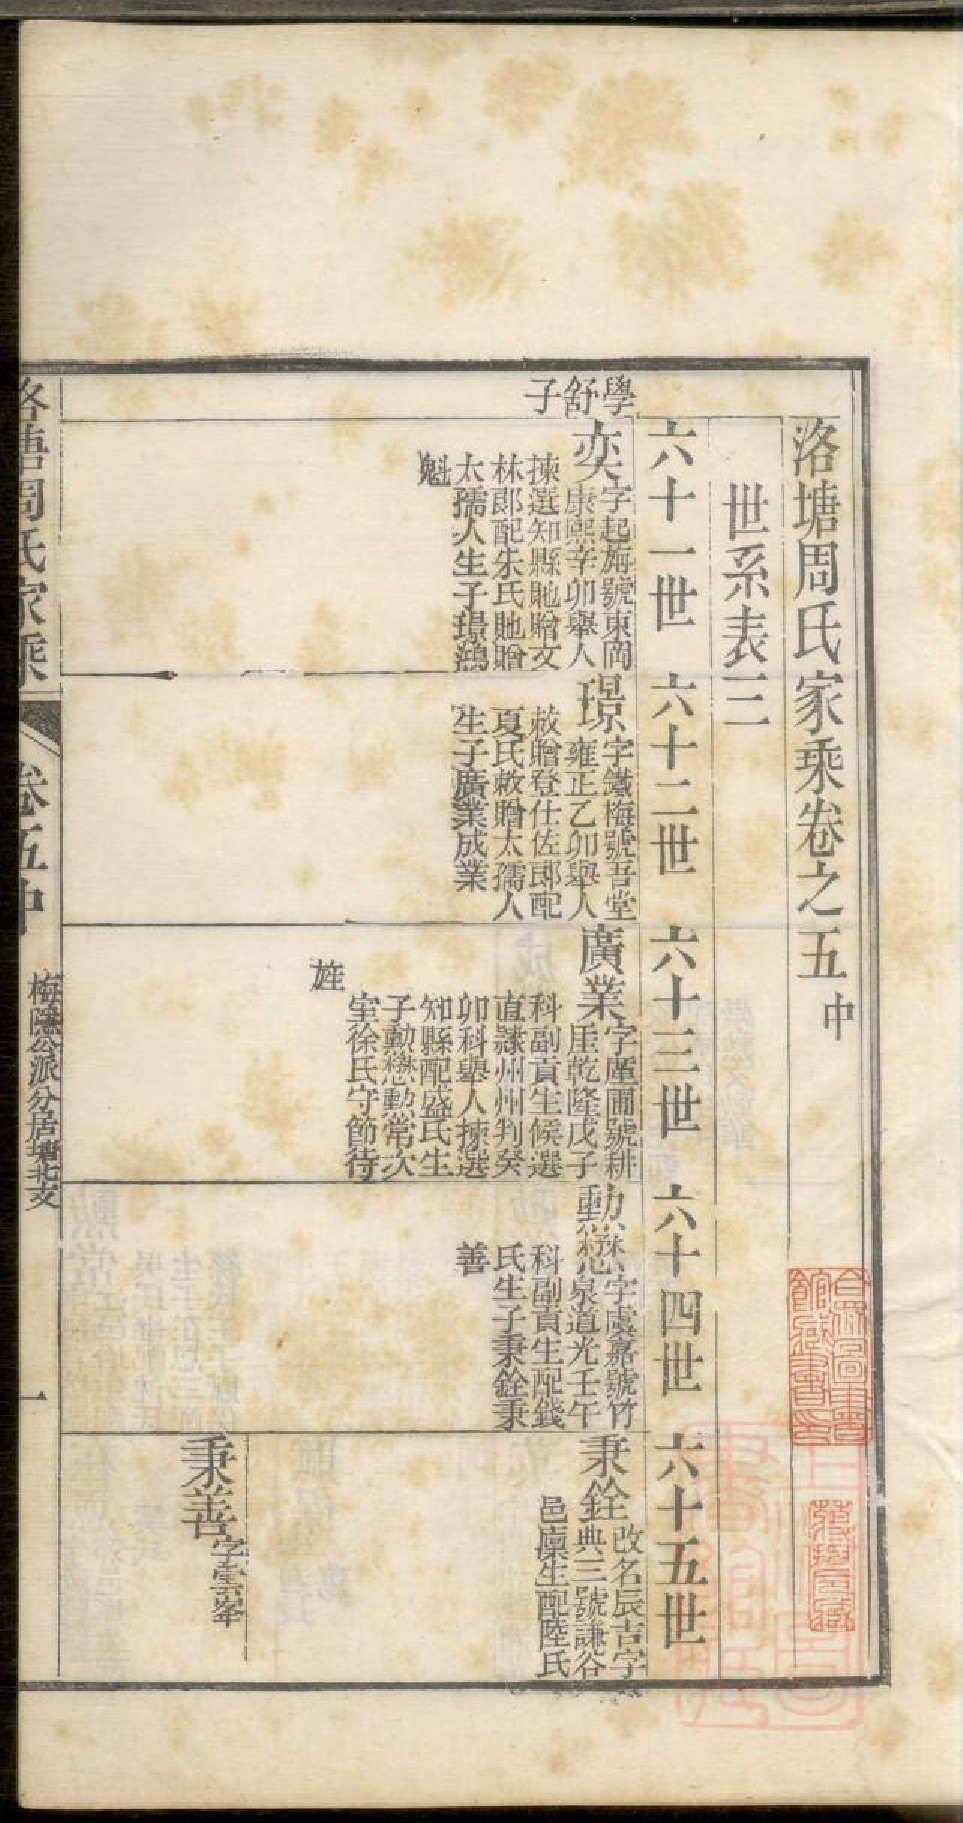 洛塘周氏家乘卷之五中
世系表三
六十一世
六十二世
六十三世
六十四世
六十五世
學舒子
奕
字起旃號東岡
康熙辛卯舉人
揀選知縣貤贈文
林郎配朱氏貤贈
太孺人生子璟鷀
魁
璟
字鐵梅號吾堂
雍正乙卯舉人
敕贈登仕佐郎配
夏氏敕贈太孺人
生子廣業成業
廣業
字蘆圃號耕
厓乾隆戊子
科副貢生候選
直隸州州判癸
卯科舉人揀選
知縣配盛氏生
子勳懋勳常次
室徐氏守節待
旌
勳懋
字虞嘉號竹
泉道光壬午
科副貢生配錢
氏生子秉銓秉
善
秉銓
改名辰吉字
典三號謙谷
邑廩生配陸氏
秉善
字雲峯
洛塘周氏家乘
卷五中
梅隱公派分居塘北支
一